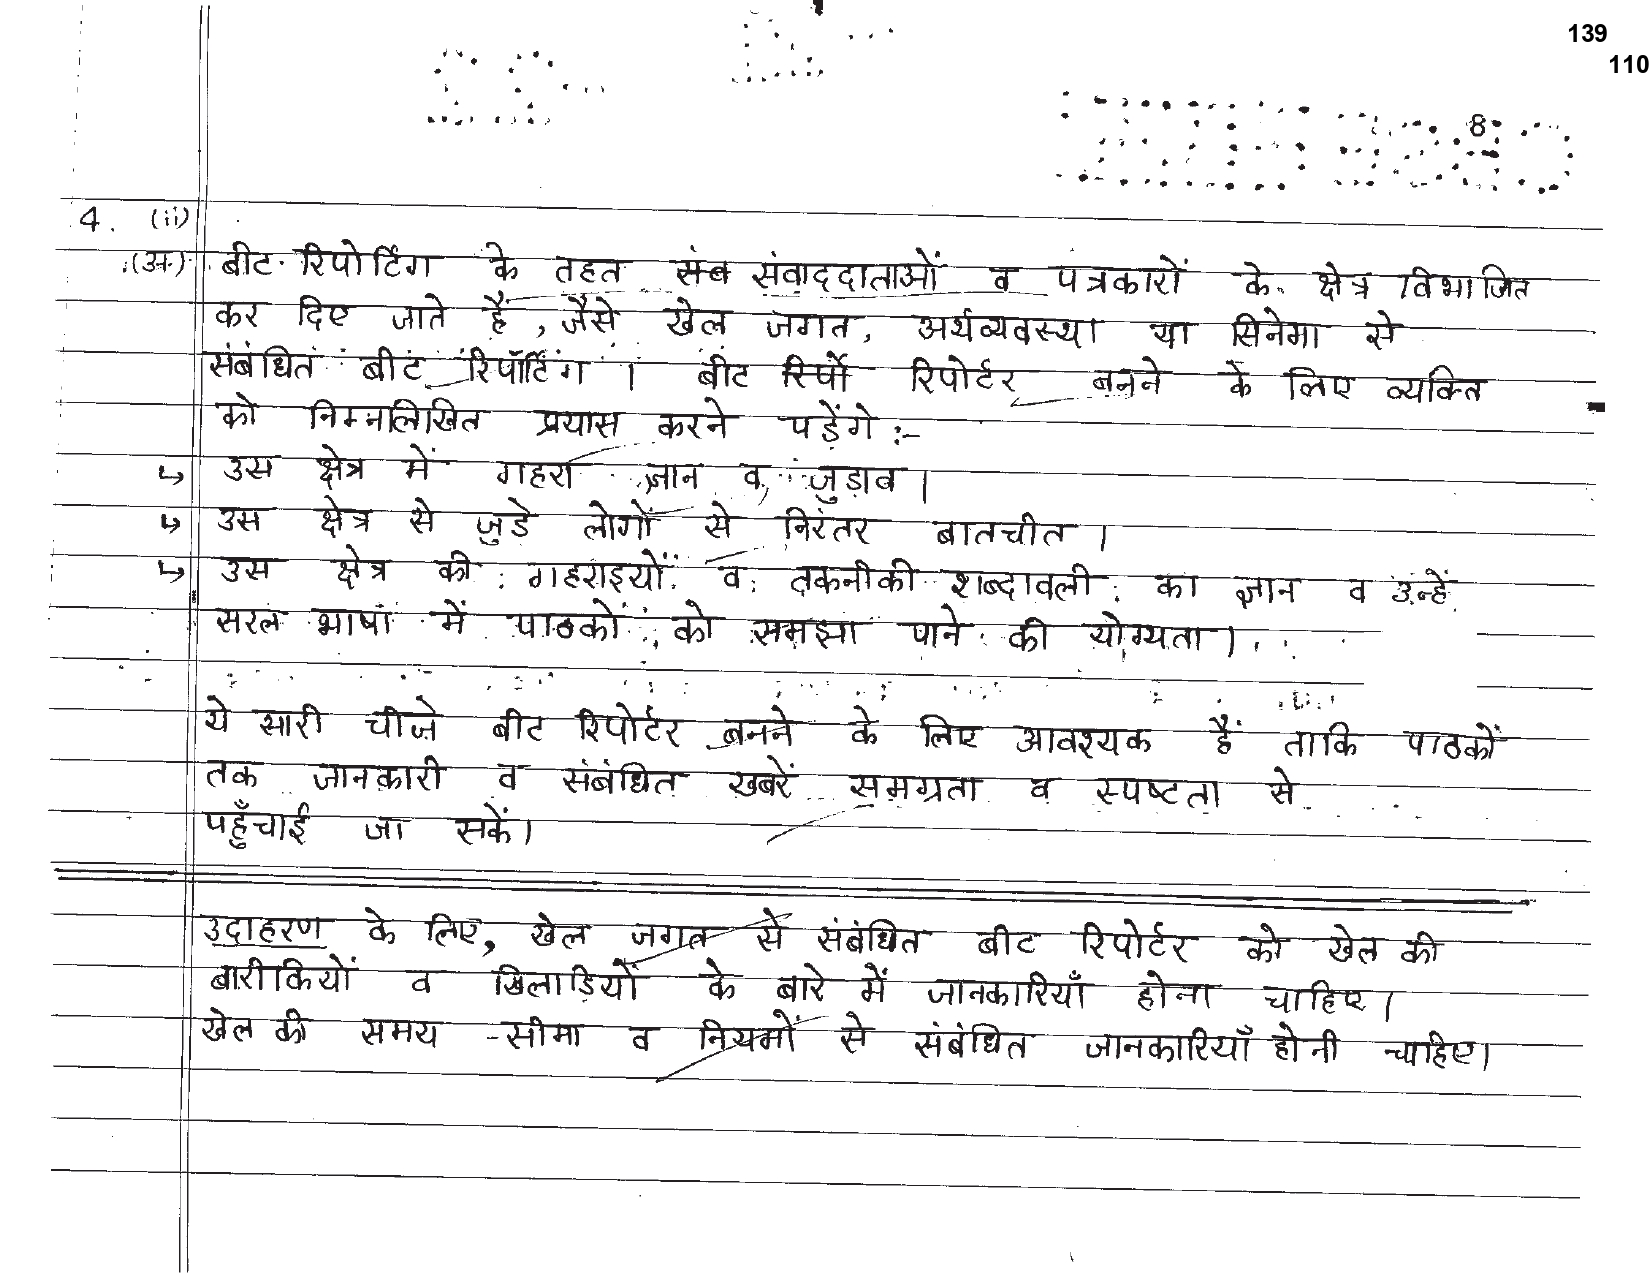 139
110
8
4. (ii)
(अ) बीट रिपोर्टिंग के तहत संवाददाताओं व पत्रकारों के क्षेत्र विभाजित
कर दिए जाते हैं, जैसे खेल जगत, अर्थव्यवस्था या सिनेमा से
संबंधित बीट रिपोर्टिंग। बीट रिपोर्टर बनने के लिए व्यक्ति
को निम्नलिखित प्रयास करने पड़ेंगे :-
↳ उस क्षेत्र में गहरा ज्ञान व जुड़ाव।
↳ उस क्षेत्र से जुडे लोगों से निरंतर बातचीत।
↳ उस क्षेत्र की गहराइयों व तकनीकी शब्दावली का ज्ञान व उन्हें
सरल भाषा में पाठकों को समझा पाने की योग्यता।
ये सारी चीजे बीट रिपोर्टर बनने के लिए आवश्यक हैं ताकि पाठकों
तक जानकारी व संबंधित खबरें समग्रता व स्पष्टता से
पहुँचाई जा सकें।
उदाहरण के लिए, खेल जगत से संबंधित बीट रिपोर्टर को खेल की
बारीकियों व खिलाड़ियों के बारे में जानकारियाँ होना चाहिए।
खेल की समय -सीमा व नियमों से संबंधित जानकारियाँ होनी चाहिए।